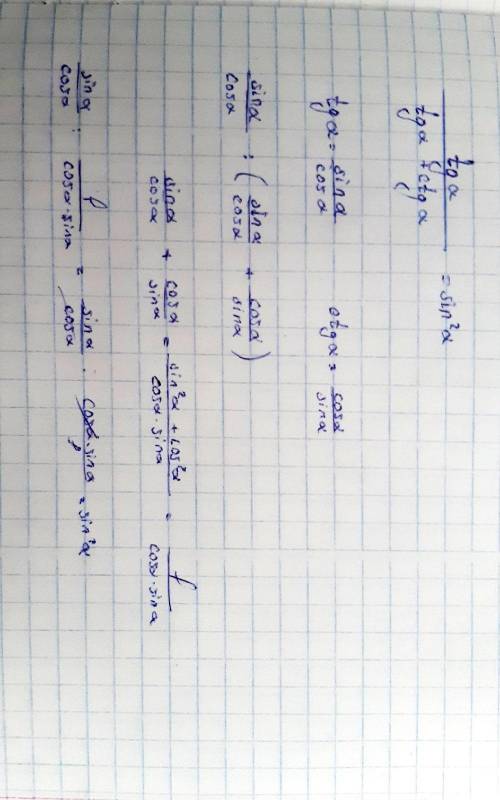 tg α / (tg α + ctg α) = sin²α
tg α = sin α / cos α    ctg α = cos α / sin α
sin α / cos α : (sin α / cos α + cos α / sin α)
sin α / cos α + cos α / sin α = (sin²α + cos²α) / (cos α · sin α) = 1 / (cos α · sin α)
sin α / cos α : 1 / (cos α · sin α) = sin α / cos α · (cos α · sin α) / 1 = sin²α